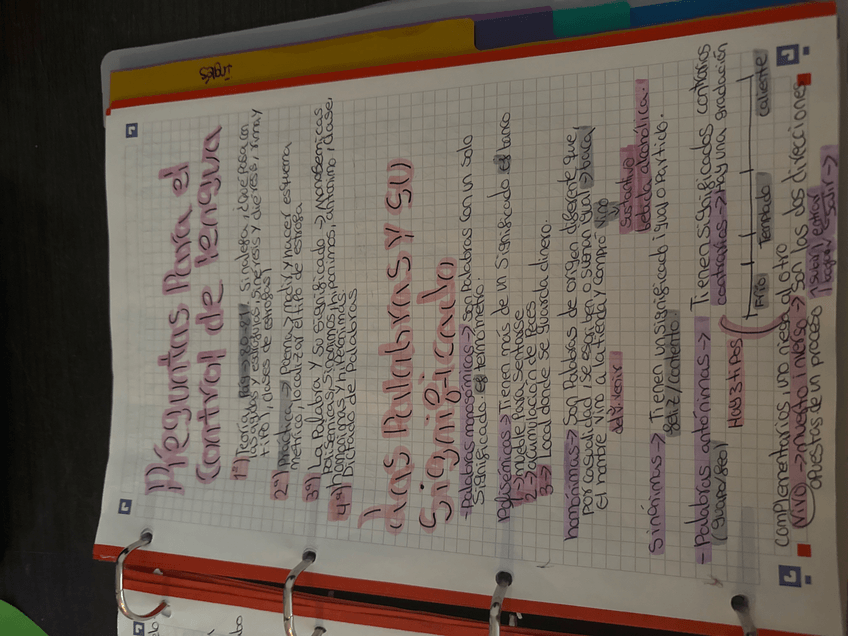 inglés
Preguntas Para el
control de lengua
1º) Teoría Pág→80-81. Sinalefa, ¿Qué pasa con
las agudas y esdrújulas, sinéresis y dieresis, rima y
tipo, clases de estrofas)
2º) Práctica → Poema, Medir, y hacer esquema
métrico, localizar el tipo de estrofa
3º) La Palabra y su significado → monosemicas
Polisemicas, Sinonimos, hiponimos, antonimo, clase,
homonimas y hiperonimas
4º) Dictado de Palabras
Las Palabras y su
significado
-Palabras monosémicas→ Son Palabras con un solo
significado. ej termómetro.
Polisémicas→ Tienen más de un significado ej banco
1→ mueble Para Sentarse
2→ acumulación de Peces
3→ Local donde se guarda dinero.
homónimas→ Son Palabras de origen diferente que,
Por casualidad, se escriben o suenan igual →baca/
El hombre vino a la tienda y compró vino
del v. venir
Sustantivo
bebida alcohólica.
Sinónimas→ Tienen un significado igual o Partido.
feliz / contento.
-Palabras antónimas→ Tienen significados contrarios
(guapo/feo)
contrarias→ Hay una gradación
Hay 3 tipos
Frío Templado Caliente
complementarios, uno niega al otro
vivo → muerto inverso→ Son las dos direcciones
opuestas de un proceso
subir/ entrar
Salir→